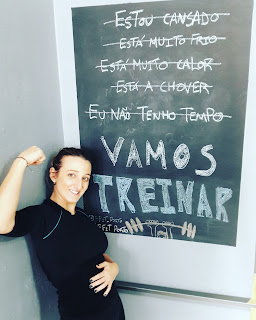 ESTOU CANSADO
ESTÁ MUITO FRIO
ESTÁ MUITO CALOR
ESTÁ A CHOVER
EU NÃO TENHO TEMPO
VAMOS
TREINAR
PORTO
PORTO